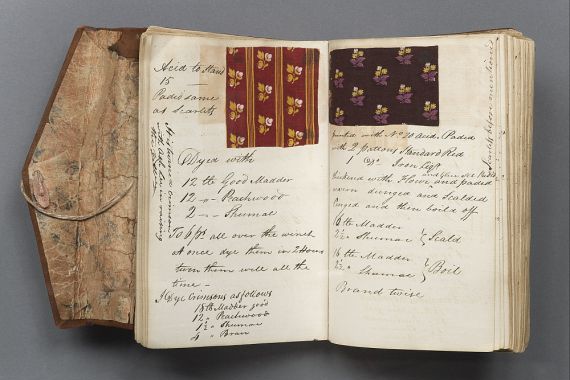 Acid to Stand
15 —
Paded same
as Scarlets
Dyed with
12 lb Good Madder
12 " Peachwood
2 " Shumac
To 6 ps all over the winch
A once dye them in 2 Hours
turn them well all the
time —
Dye Crimsons as follows
18 lb Madder good
12 " Peachwood
1½ " Shumac
4 " Bran
printed with No 20 acid. Paded
with 2 pattons Standard Red
1 Do Iron Liqr
Thickened with Flour and paded
warm dunged and Scalded
Dunged and then boild off
16 lb Madder
2½ " Shumac } Scald
16 lb Madder
2½ " Shumac } Boil
Brand twice
before mentioned